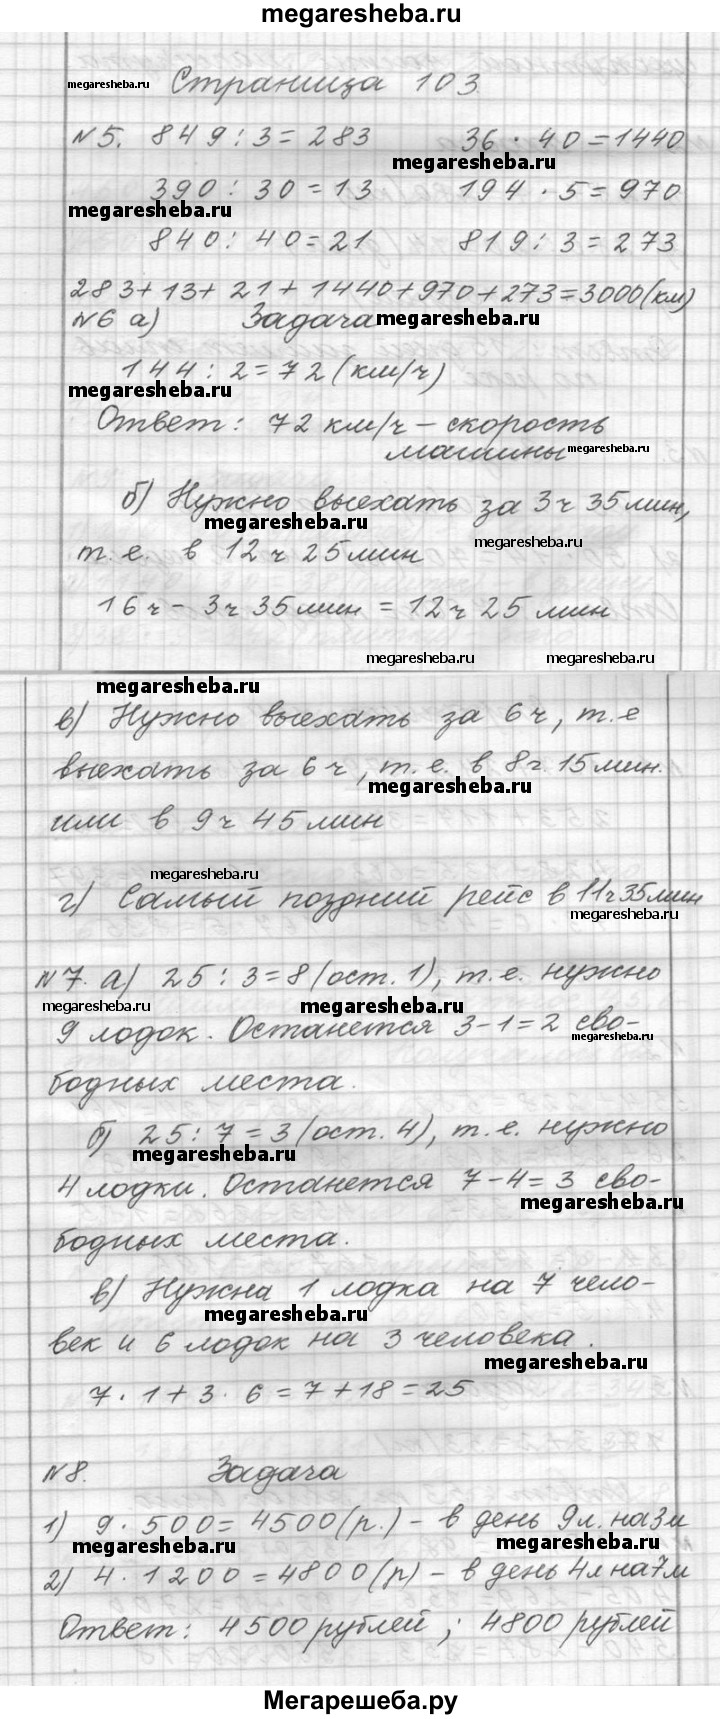 megaresheba.ru
megaresheba.ru Страница 103
№5. 849 : 3 = 283 36 · 40 = 1440
megaresheba.ru
390 : 30 = 13 194 · 5 = 970
megaresheba.ru
840 : 40 = 21 819 : 3 = 273
283 + 13 + 21 + 1440 + 970 + 273 = 3000 (км)
№6 а) Задача megaresheba.ru
144 : 2 = 72 (км/ч)
megaresheba.ru
Ответ: 72 км/ч – скорость
машины megaresheba.ru
б) Нужно выехать за 3ч 35мин,
megaresheba.ru
megaresheba.ru
т.е. в 12ч 25мин
16ч – 3ч 35мин = 12ч 25 мин
megaresheba.ru megaresheba.ru
megaresheba.ru
в) Нужно выехать за 6ч, т.е
выехать за 6ч, т.е. в 8ч 15мин.
megaresheba.ru
или в 9ч 45мин
megaresheba.ru
г) Самый поздний рейс в 11ч35мин
megaresheba.ru
№7. а) 25 : 3 = 8 (ост. 1), т.е. нужно
megaresheba.ru megaresheba.ru
9 лодок. Останется 3 – 1 = 2 сво-
megaresheba.ru
бодных места.
б) 25 : 7 = 3 (ост. 4), т.е. нужно
megaresheba.ru
4 лодки. Останется 7 – 4 = 3 сво-
megaresheba.ru
бодных места.
в) Нужна 1 лодка на 7 чело-
megaresheba.ru
век и 6 лодок на 3 человека.
megaresheba.ru
7 · 1 + 3 · 6 = 7 + 18 = 25
№8. Задача
1) 9 · 500 = 4500 (р.) – в день 9л. на 3м
megaresheba.ru megaresheba.ru
2) 4 · 1200 = 4800 (р) – в день 4л на 7м
Ответ: 4500 рублей; 4800 рублей
megaresheba.ru megaresheba.ru
Мегарешеба.ру